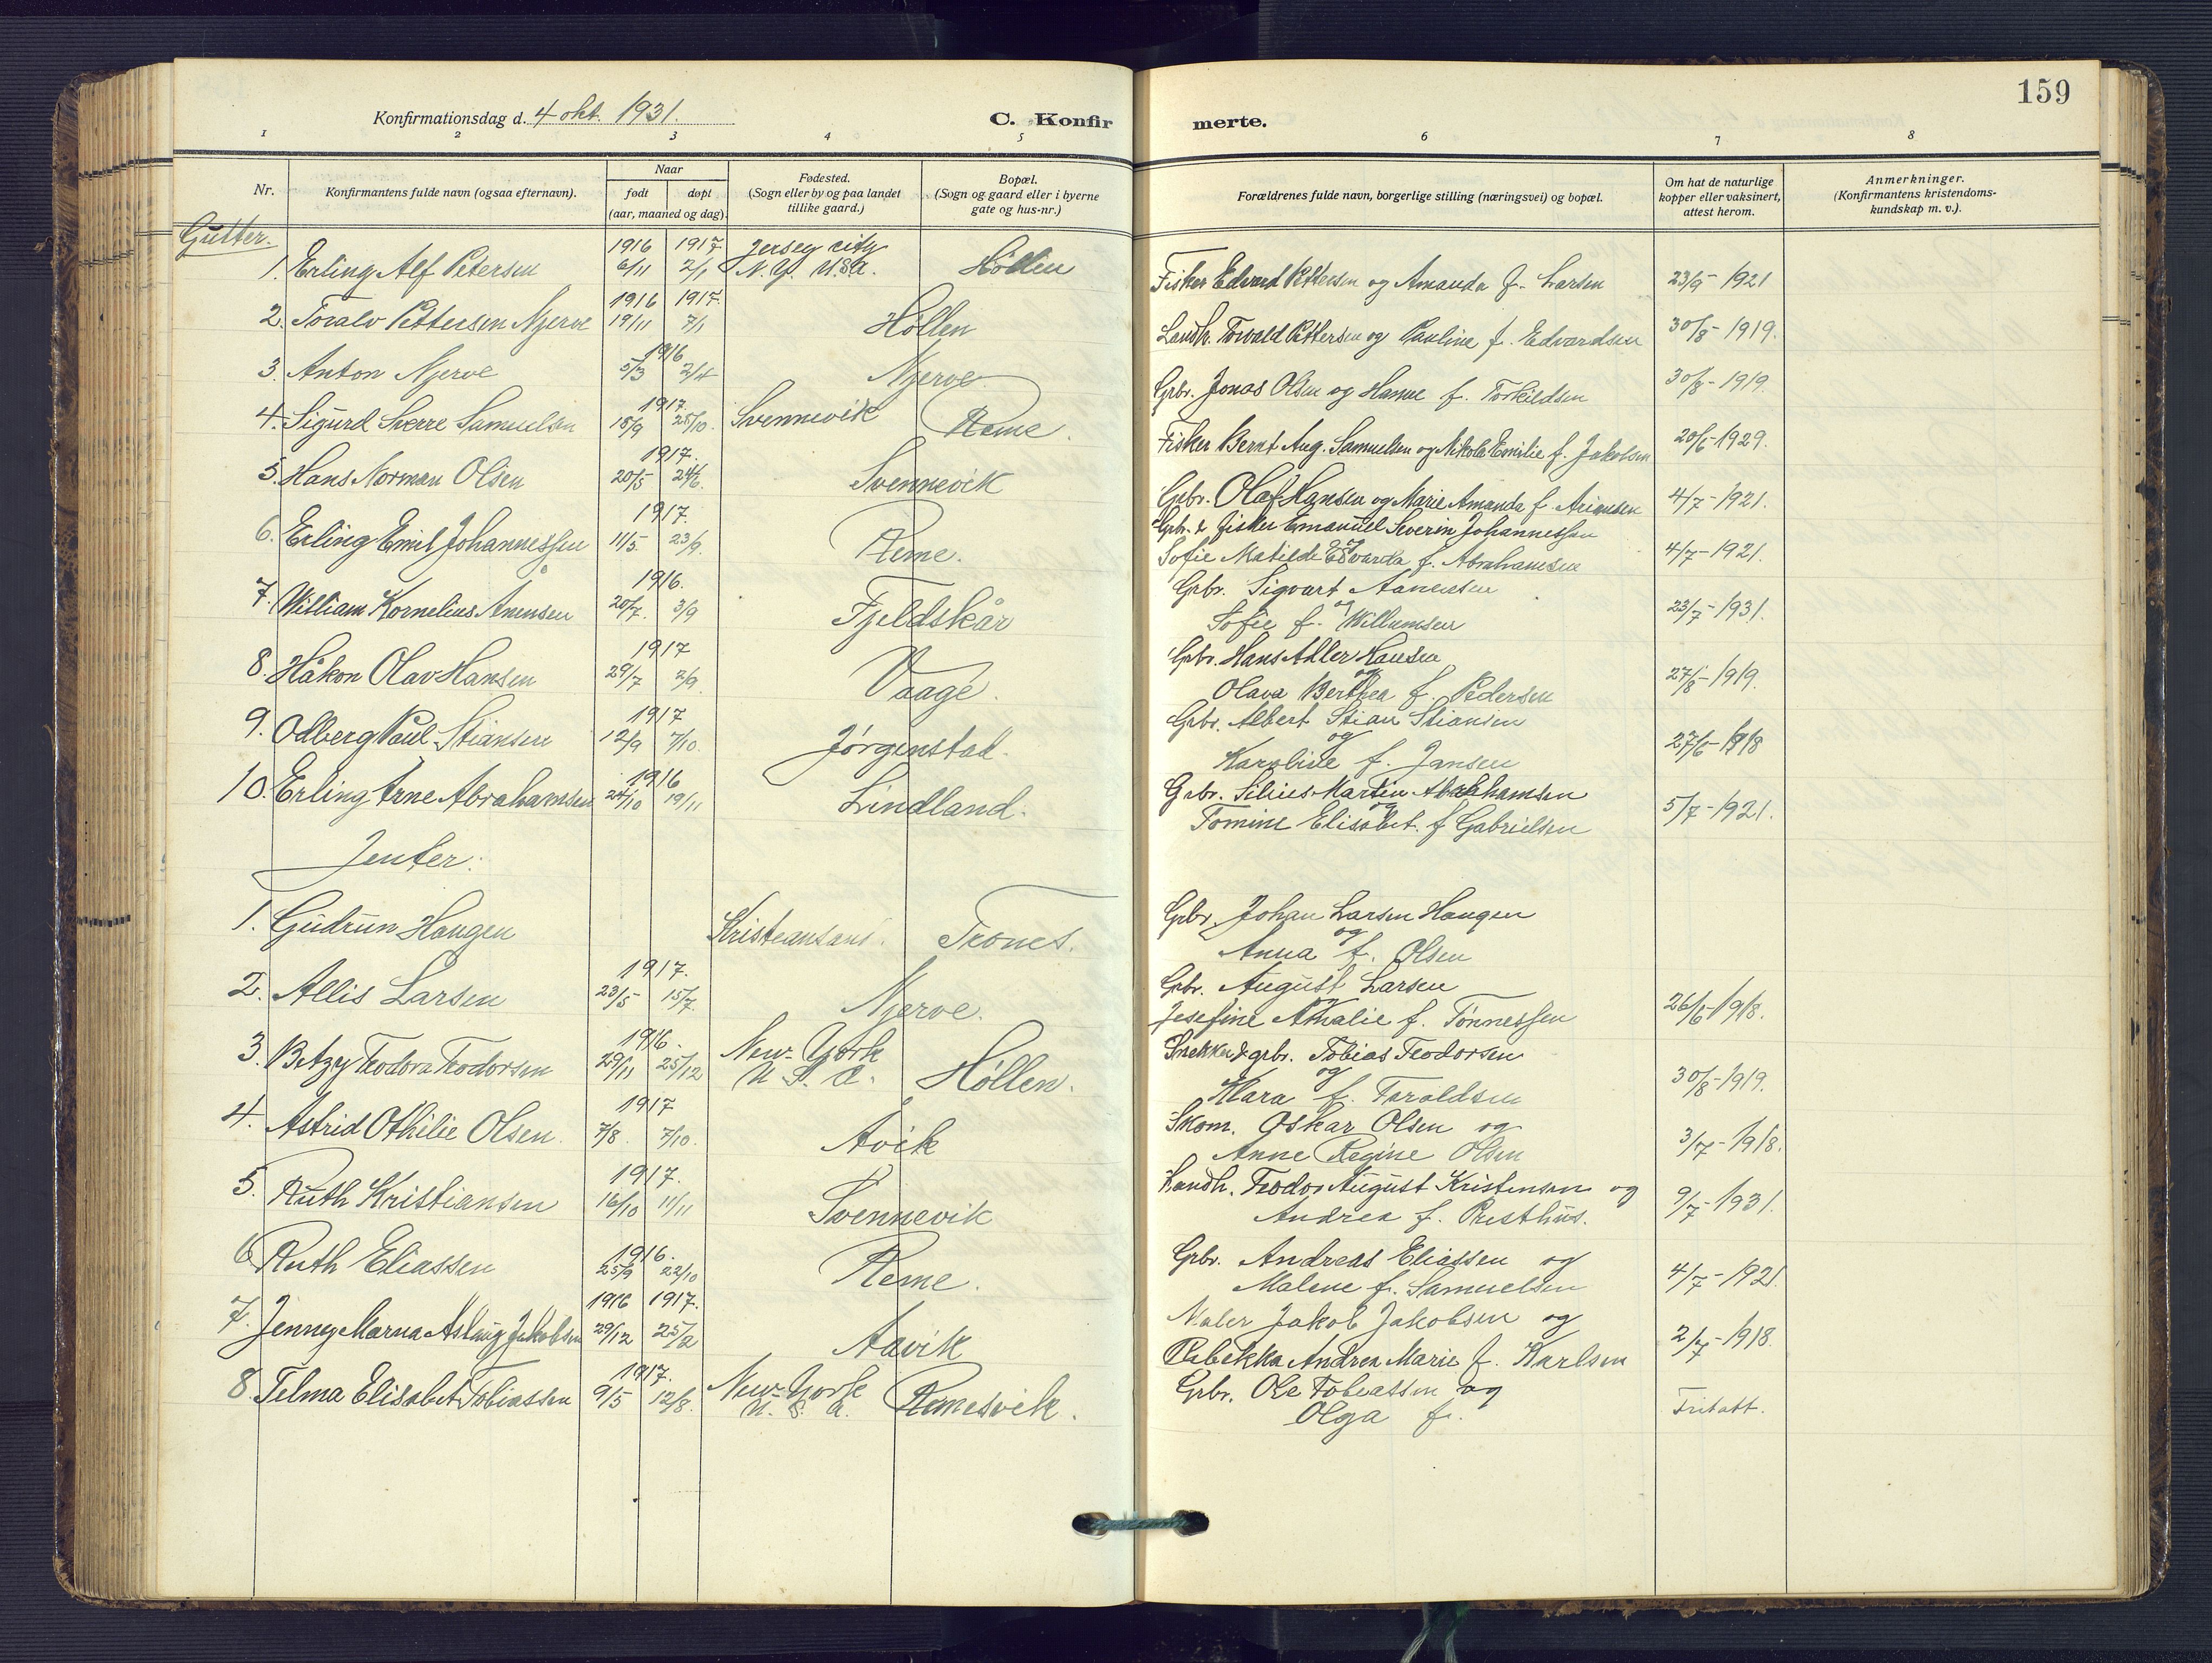 159
Konfirmationsdag d. 4 okt. 1931.
C. Konfirmerte.
1 2 3 4 5 6 7 8
Nr.
Konfirmantens fulde navn (ogsaa efternavn).
Naar
født døpt
(aar, maaned og dag).
Fødested.
(Sogn eller by og paa landet
tillike gaard.)
Bopæl.
(Sogn og gaard eller i byerne
gate og hus-nr.)
Forældrenes fulde navn, borgerlige stilling (næringsvei) og bopæl.
Om hat de naturlige
kopper eller vaksinert,
attest herom.
Anmerkninger.
(Konfirmantens kristendoms-
kundskap m. v.).
Gutter.
1916 1917 Jersey city
1. Erling Alf Petersen 6/11 2/1 N. Y. U.S.A. Höllen Fisker Edvard Pettersen og Amanda f. Larsen 23/9 - 1921
1916 1917.
2. Toralv Pettersen Njerve 19/11 7/1 Höllen Landh. Torvald Pettersen og Pauline f. Edvardsen 30/8 - 1919.
1916
3. Anton Njerve 5/3 2/4 Njerve. Grbr. Jonas Olsen og Hanne f. Torkildsen 30/8 - 1919.
1917
4. Sigurd Sverre Samuelsen 15/9 25/10. Svennevik Reme. Fisker Bernt Aug. Samuelsen og Nikola Emilie f. Jakobsen 20/6 1929.
1917.
5. Hans Norman Olsen 20/5 24/6. Svennevik Grbr. Olaf Hansen og Marie Amanda f. Arionsen 4/7 - 1921.
1917.
6. Erling Emil Johannessen 11/5. 23/9. Reme. Grb. & fisker Emanuel Severin Johannessen
og
Sofie Matilde Edvarda f. Abrahamsen 4/7 - 1921.
1916.
7. William Kornelius Ånensen 20/7. 3/9 Fjeldskår Grbr. Sigvart Aanensen
og
Sofie f. Willumsen 23/7 - 1931.
1917
8. Håkon Olav Hansen 29/7 2/9. Vaage. Grbr. Hans Adler Hansen
og
Olava Berthea f. Pedersen 27/8 - 1919.
1917
9. Odberg Paul Stiansen 12/9 7/10. Jørgenstad. Grbr. Albert Stian Stiansen
og
Karoline f. Jansen 27/6 - 1918
1916
10. Erling Arne Abrahamsen 24/10 19/11 Lindland. Grbr. Silius Martin Abrahamsen
og
Tomine Elisabet f Gabrielsen 5/7 - 1921.
Jenter:
1. Gudrun Haugen Kristiansand. Trones. Grbr. Johan Larsen Haugen
og
Anna f. Olsen
1917.
2. Allis Larsen 23/5 15/7. Njerve. Grbr. August Larsen
og
Josefine Amalie f. Tønnessen 26/6 - 1918.
1916. New-York
3. Betzy Teodora Teodorsen 29/11 25/12 U. S. A. Höllen. Snekker & grbr. Tobias Teodorsen
og
Klara f. Taraldsen 30/8 - 1919.
1917
4. Astrid Othilie Olsen. 7/8. 7/10. Åvik Skom. Oskar Olsen og
Anne Regine Olsen 3/7 - 1918.
1917.
5. Ruth Kristiansen 16/10 11/11 Svennevik Landh. Teodor August Kristensen og
Andrea f. Presthus. 9/7 - 1931.
1916.
6 Ruth Eliassen 25/9 22/10 Reme. Grbr. Andreas Eliassen og
Malene f. Samuelsen 4/7 - 1921.
1916 1917.
7. Jenny Marna Aslaug Jakobsen 29/12 25/2 Aavik Maler Jakob Jakobsen og
Rebekka Andrea Marie f. Karlsen 2/7 - 1918.
1917. New-York
8. Telma Elisabet Tobiassen 9/5 12/8. U. S. A. Remesvik. Grbr. Ole Tobiassen og
Olga f. Fritatt.